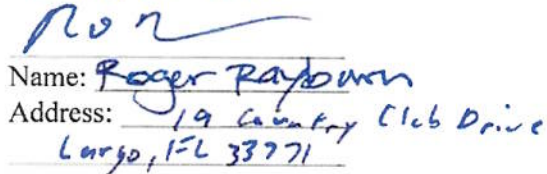 Name: Roger Rayburn
Address: 19 Country Club Drive
Largo, FL 33771